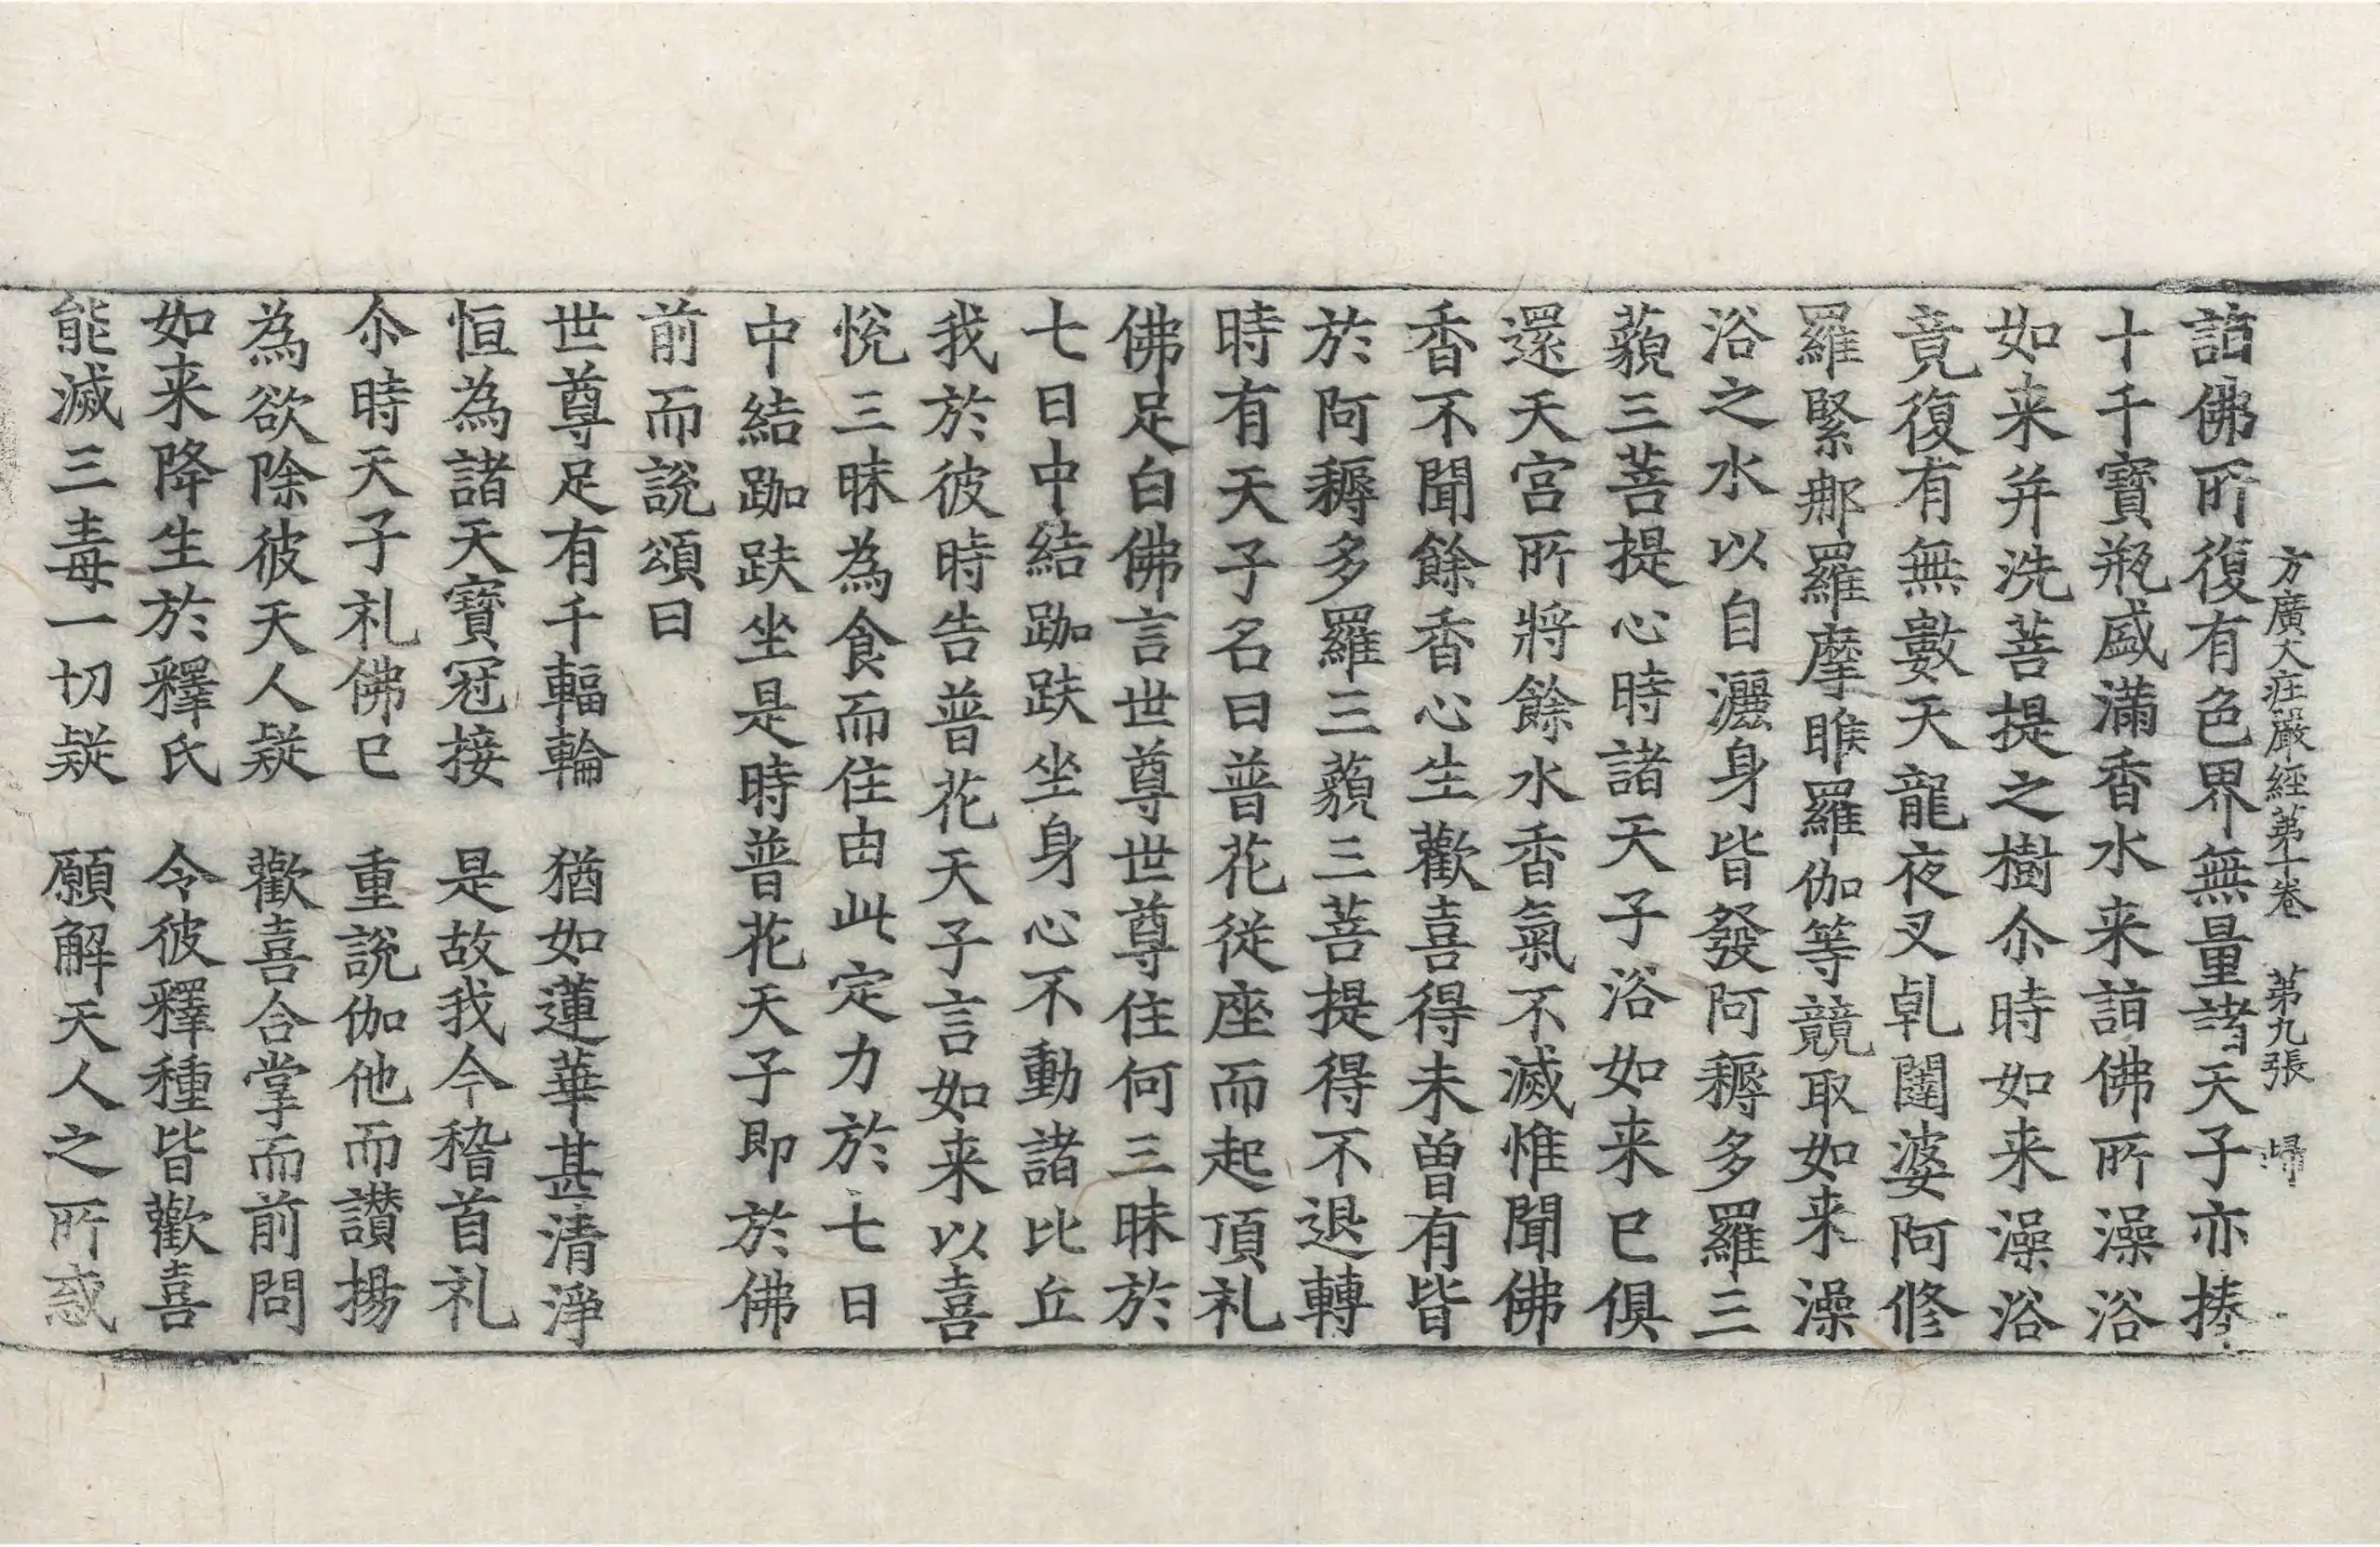 方廣大莊嚴經第十卷　第九張　㷌
詣佛所復有色界無量諸天子亦捧
十千寶瓶盛滿香水来詣佛所澡浴
如来并洗菩提之樹尒時如来澡浴
竟復有無數天龍夜叉乹闥婆阿修
羅緊那羅摩睺羅伽等競取如来澡
浴之水以自灑身皆發阿耨多羅三
藐三菩提心時諸天子浴如来已俱
還天宮所將餘水香氣不滅惟聞佛
香不聞餘香心生歡喜得未曾有皆
於阿耨多羅三藐三菩提得不退轉
時有天子名曰普花從座而起頂礼
佛足白佛言世尊世尊住何三昧於
七日中結跏趺坐身心不動諸比丘
我於彼時告普花天子言如来以喜
悅三昧為食而住由此定力於七日
中結跏趺坐是時普花天子即於佛
前而說頌曰
世尊足有千輻輪　猶如蓮華甚清淨
恒為諸天寶冠接　是故我今稽首礼
尒時天子礼佛已　重說伽他而讃揚
為欲除彼天人疑　歡喜合掌而前問
如来降生於釋氏　令彼釋種皆歡喜
能滅三毒一切疑　願解天人之所惑